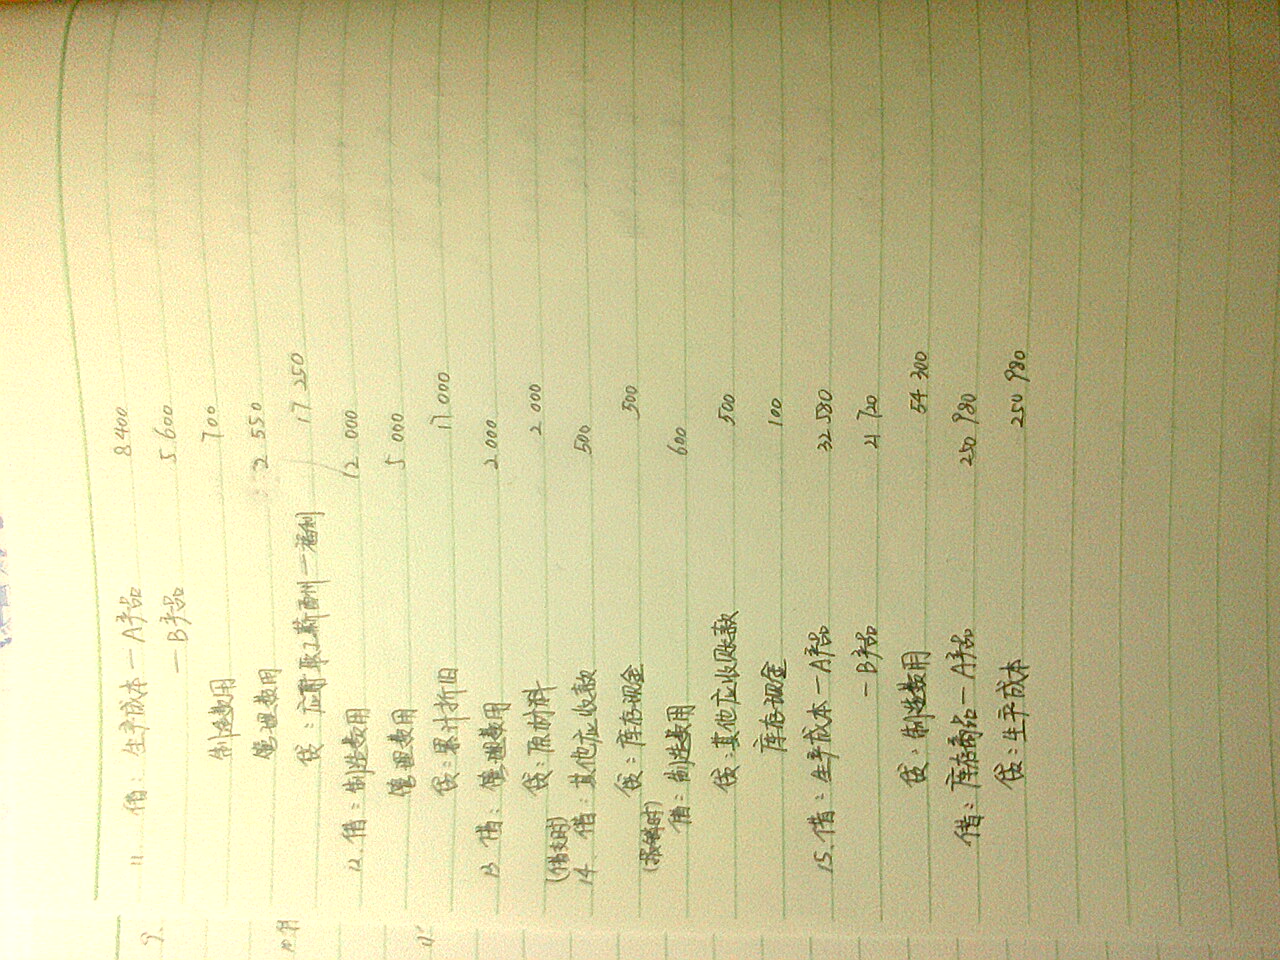 11. 借：生产成本—A产品 8 400
—B产品 5 600
制造费用 700
管理费用 2 550
贷：应付职工薪酬—福利 17 250
12. 借：制造费用 12 000
管理费用 5 000
贷：累计折旧 17 000
13 借：管理费用 2 000
贷：原材料 2 000
(借支时)
14. 借：其他应收款 500
贷：库存现金 500
(报销时)
借：制造费用 600
贷：其他应收账款 500
库存现金 100
15. 借：生产成本—A产品 32 580
—B产品 21 720
贷：制造费用 54 300
借：库存商品—A产品 250 980
贷：生产成本 250 980
9.